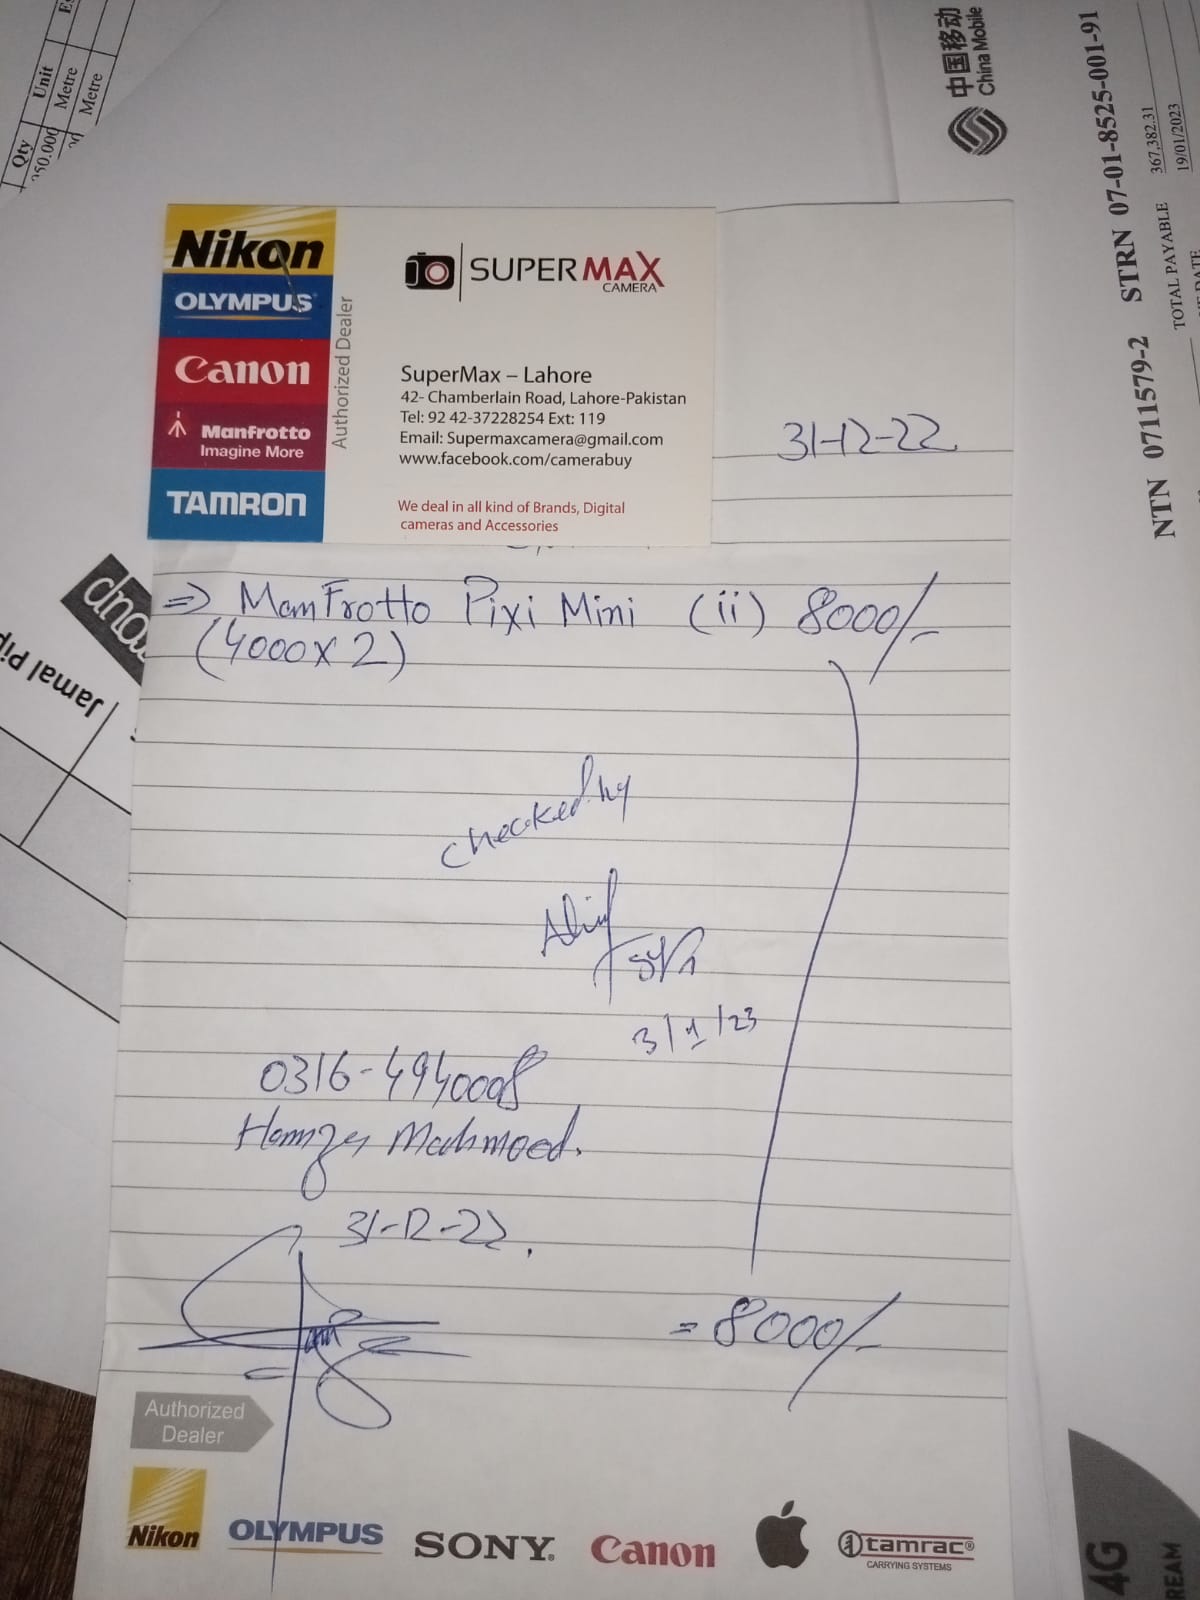 Qty Unit
050.000 Metre
Metre
中国移动
China Mobile
NTN 0711579-2 STRN 07-01-8525-001-91
TOTAL PAYABLE 367,382.31
19/01/2023
Nikon
OLYMPUS
Canon
Manfrotto
Imagine More
TAMRON
Authorized Dealer
SUPERMAX
CAMERA
SuperMax – Lahore
42- Chamberlain Road, Lahore-Pakistan
Tel: 92 42-37228254 Ext: 119
Email: Supermaxcamera@gmail.com
www.facebook.com/camerabuy
We deal in all kind of Brands, Digital
cameras and Accessories
31-12-22
⇒ ManFrotto Pixi Mini (ii) 8000/-
(4000x2)
checked by
3/1/23
0316-4940008
Hamza Mahmood.
31-12-22.
= 8000/-
Jamal Pip
Authorized
Dealer
Nikon OLYMPUS SONY. Canon tamrac®
CARRYING SYSTEMS
4G